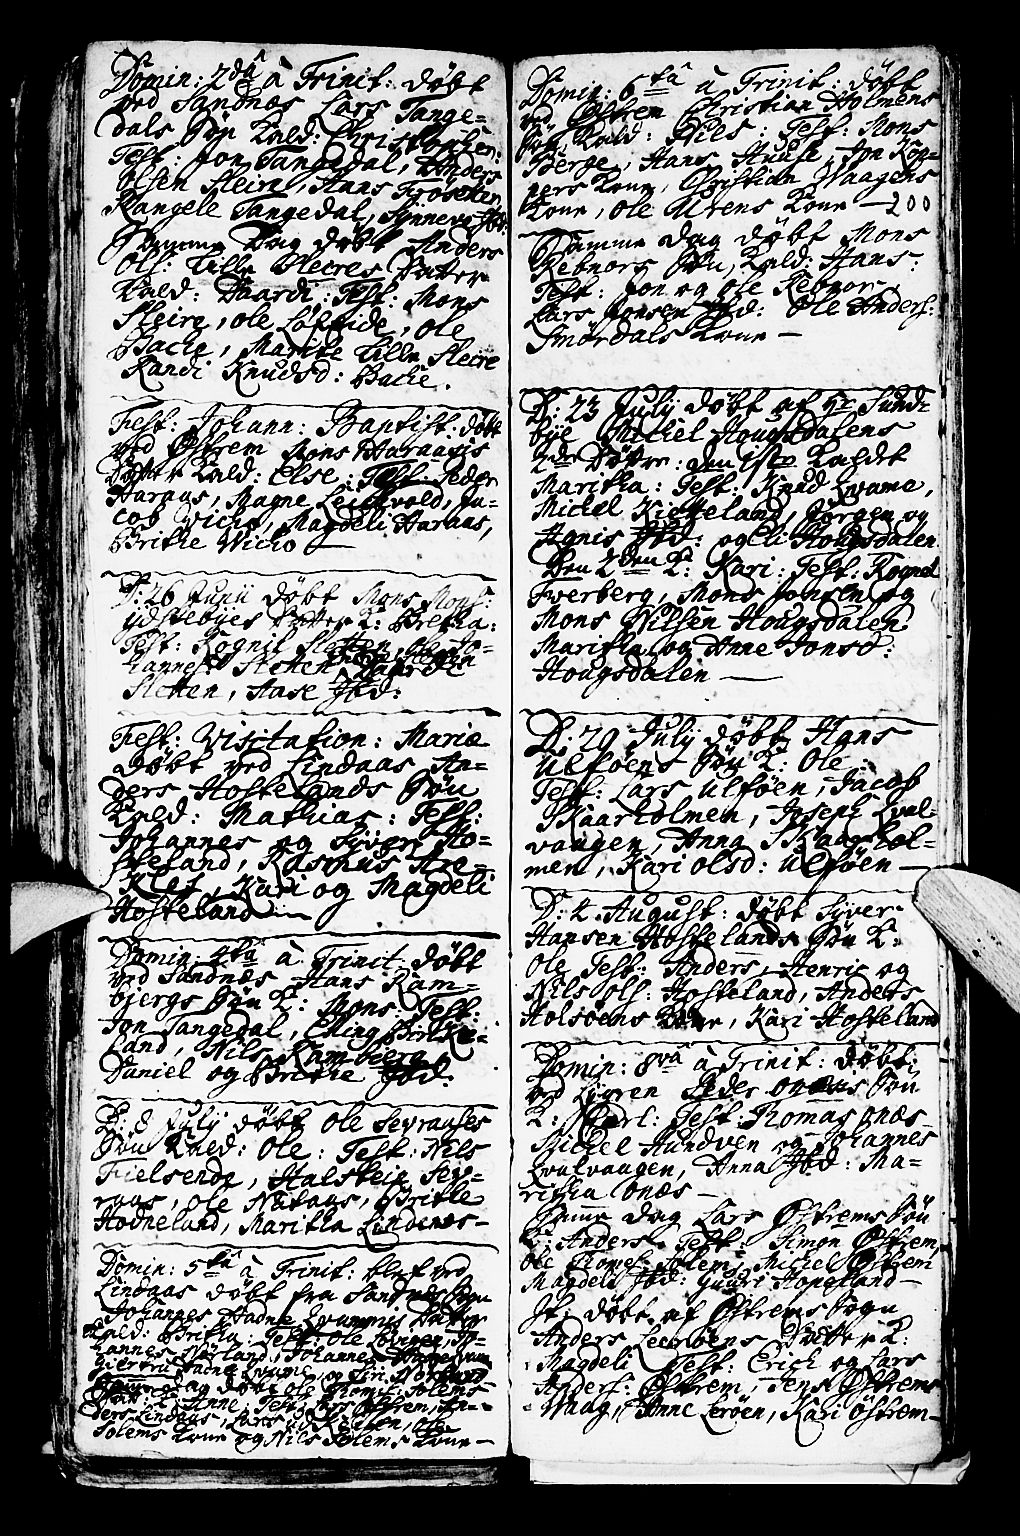 Domin: 2da à Trinit: døbt
ved Sandnæs Lars Tange=
dals Søn Kald: Christopher:
Test: Jon Tangedal, Anders
Olsen Fleire, Hans
Rangele Tangedal, Synneve Ibd:
Samme Dag døbt Anders
Ols: Lille Fleires Datter
Kald: Baardi: Test: Mons
Fleire, Ole Løftide, Ole
Backe, Marite Lille Fleire
Randi Knudsd: Backe.
Fest: Johann: Baptist: døbt
ved Østrem Mons Haraasis
Datter Kald: Else: Test: Peder
Haraas, Magne Leitvold, Ja=
cob Vicho, Magdeli Haraas,
Brithe Wicho —
D: 26 Junii døbt Mons Mons:
Ydstebyes Datter K: Bretha:
Test: Rognil Sletten, Jo=
hannes Sletten,
Sletten, Aase Ibd:
Fest: Visitation: Mariæ
døbt ved Lindaas An=
ders Hostelands Søn
Kald: Mathias: Test:
Johannes og Syver Ho=
steland, Rasmus Are=
Kles, Kari og Magdeli
Hosteland —
Domin: 4ta à Trinit: døbt
ved Sandnæs Hans Ram=
bjergs Søn K: Mons: Test:
Jon Tangedal, Elling Birke=
land, Nils Rambierg
Daniel og Brithe Ibd.
D: 8 July døbt Ole Sevraases
Søn Kald: Ole: Test: Nils
Fielsende, Halstein Sev=
raas, Ole Nataas, Brithe
Hodneland, Maritha Lindenæs —
Domin: 5ta à Trinit: blef ved
Lindaas døbt fra Sandnes Sogn
Johannes Hadne Kvammis Datter
Kald: Britha: Test: Ole
hannes Nørland, Johannes
og Siri
Dag døbt Ole Thomes: Solems
K: Anne: Test: Lars Østrem, An=
ders Lindaas, Lars Ole
Solems Kone og Nils Solems Kone —
Domin: 6ta à Trinit: døbt
ved Østrem Christian Holmens
Søn, Kald: Nils: Test: Mons
Berge, Hans Huuse, Jon Kon=
ners Kone, Christian Vaagens
Kone, Ole Urens Kone — 200
Samme dag døbt Mons
Rebnors Søn, Kald: Hans:
Test: Jon og Ole Rebnor
Lars Jonsen Ibd: Ole Anders:
Smørdals Kone —
D: 23 July døbt af Hr Sund:
bye Michel Hougsdalens
2de Døttre: den 1ste Kaldt
Maritha: Test: Knud Kvame,
Michel Kieteland, Jørgen og
Agnis Ibd: og Eli Hougsdalen
Den 2den K: Kari: Test: Rognel
Fverberg, Mons Jonsen og
Mons Nilsen Hougsdalen
Maritha og Anne Jonsd:
Hougsdalen —
D: 29 July døbt Hans
Ulføens Søn K: Ole:
Test: Lars Ulføen, Jacob
Skaarholmen, Joseph Kval=
vaagen, Anna Skaarhol=
men, Kari Olsd: Ulføen —
D: 4 August: døbt Syver
Hansen Hostelands Søn K:
Ole Test: Anders, Henric og
Nils Ols: Hosteland, Anders
Holsøens Kone, Kari Hosteland
Domin: 8va à Trinit: døbt
ved Lygren Peder Onæs Søn
K: Test: Thomas Onæs
Michel Hundven og Johannes
Kvalvaagen, Anna Ibd: Ma=
ritha Onæs —
Samme dag Lars Østrems Søn
K: Anders: Test: Simon Østrem,
Ole Thomes: Solem, Michel Østrem
Magdeli Ibd: Guuri Hopeland —
It: døbt af Østrems Sogn
Anders Leerøens Datter K:
Magdeli Test: Erich og Lars
Anders: Østrem, Jens Østrems
Vaag, Anne Lerøen, Kari Østrem —